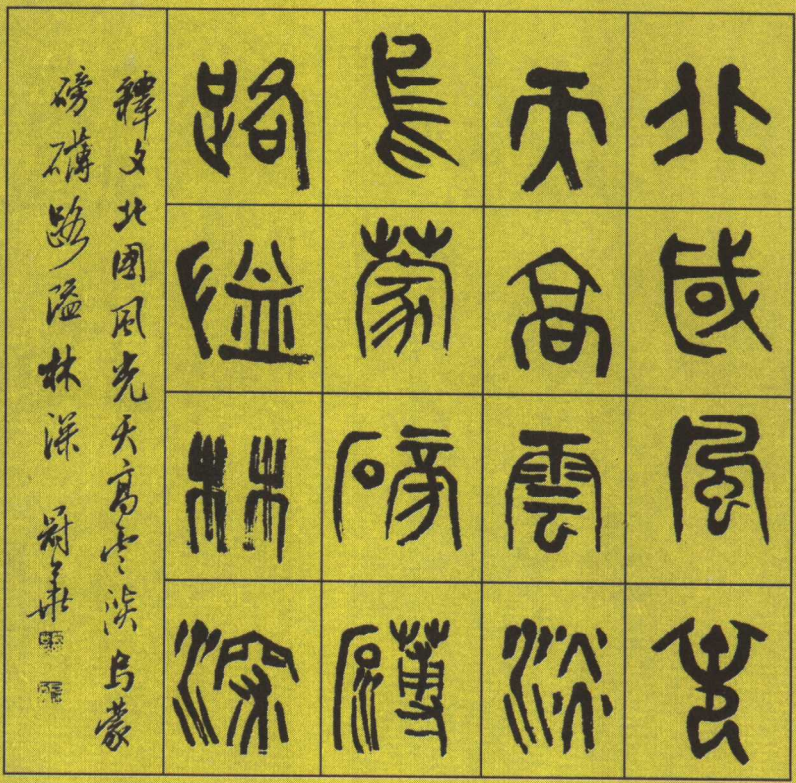 北國風光
天高雲淡
烏蒙磅礴
路隘林深
釋文北國風光天高雲淡烏蒙
磅礴路隘林深